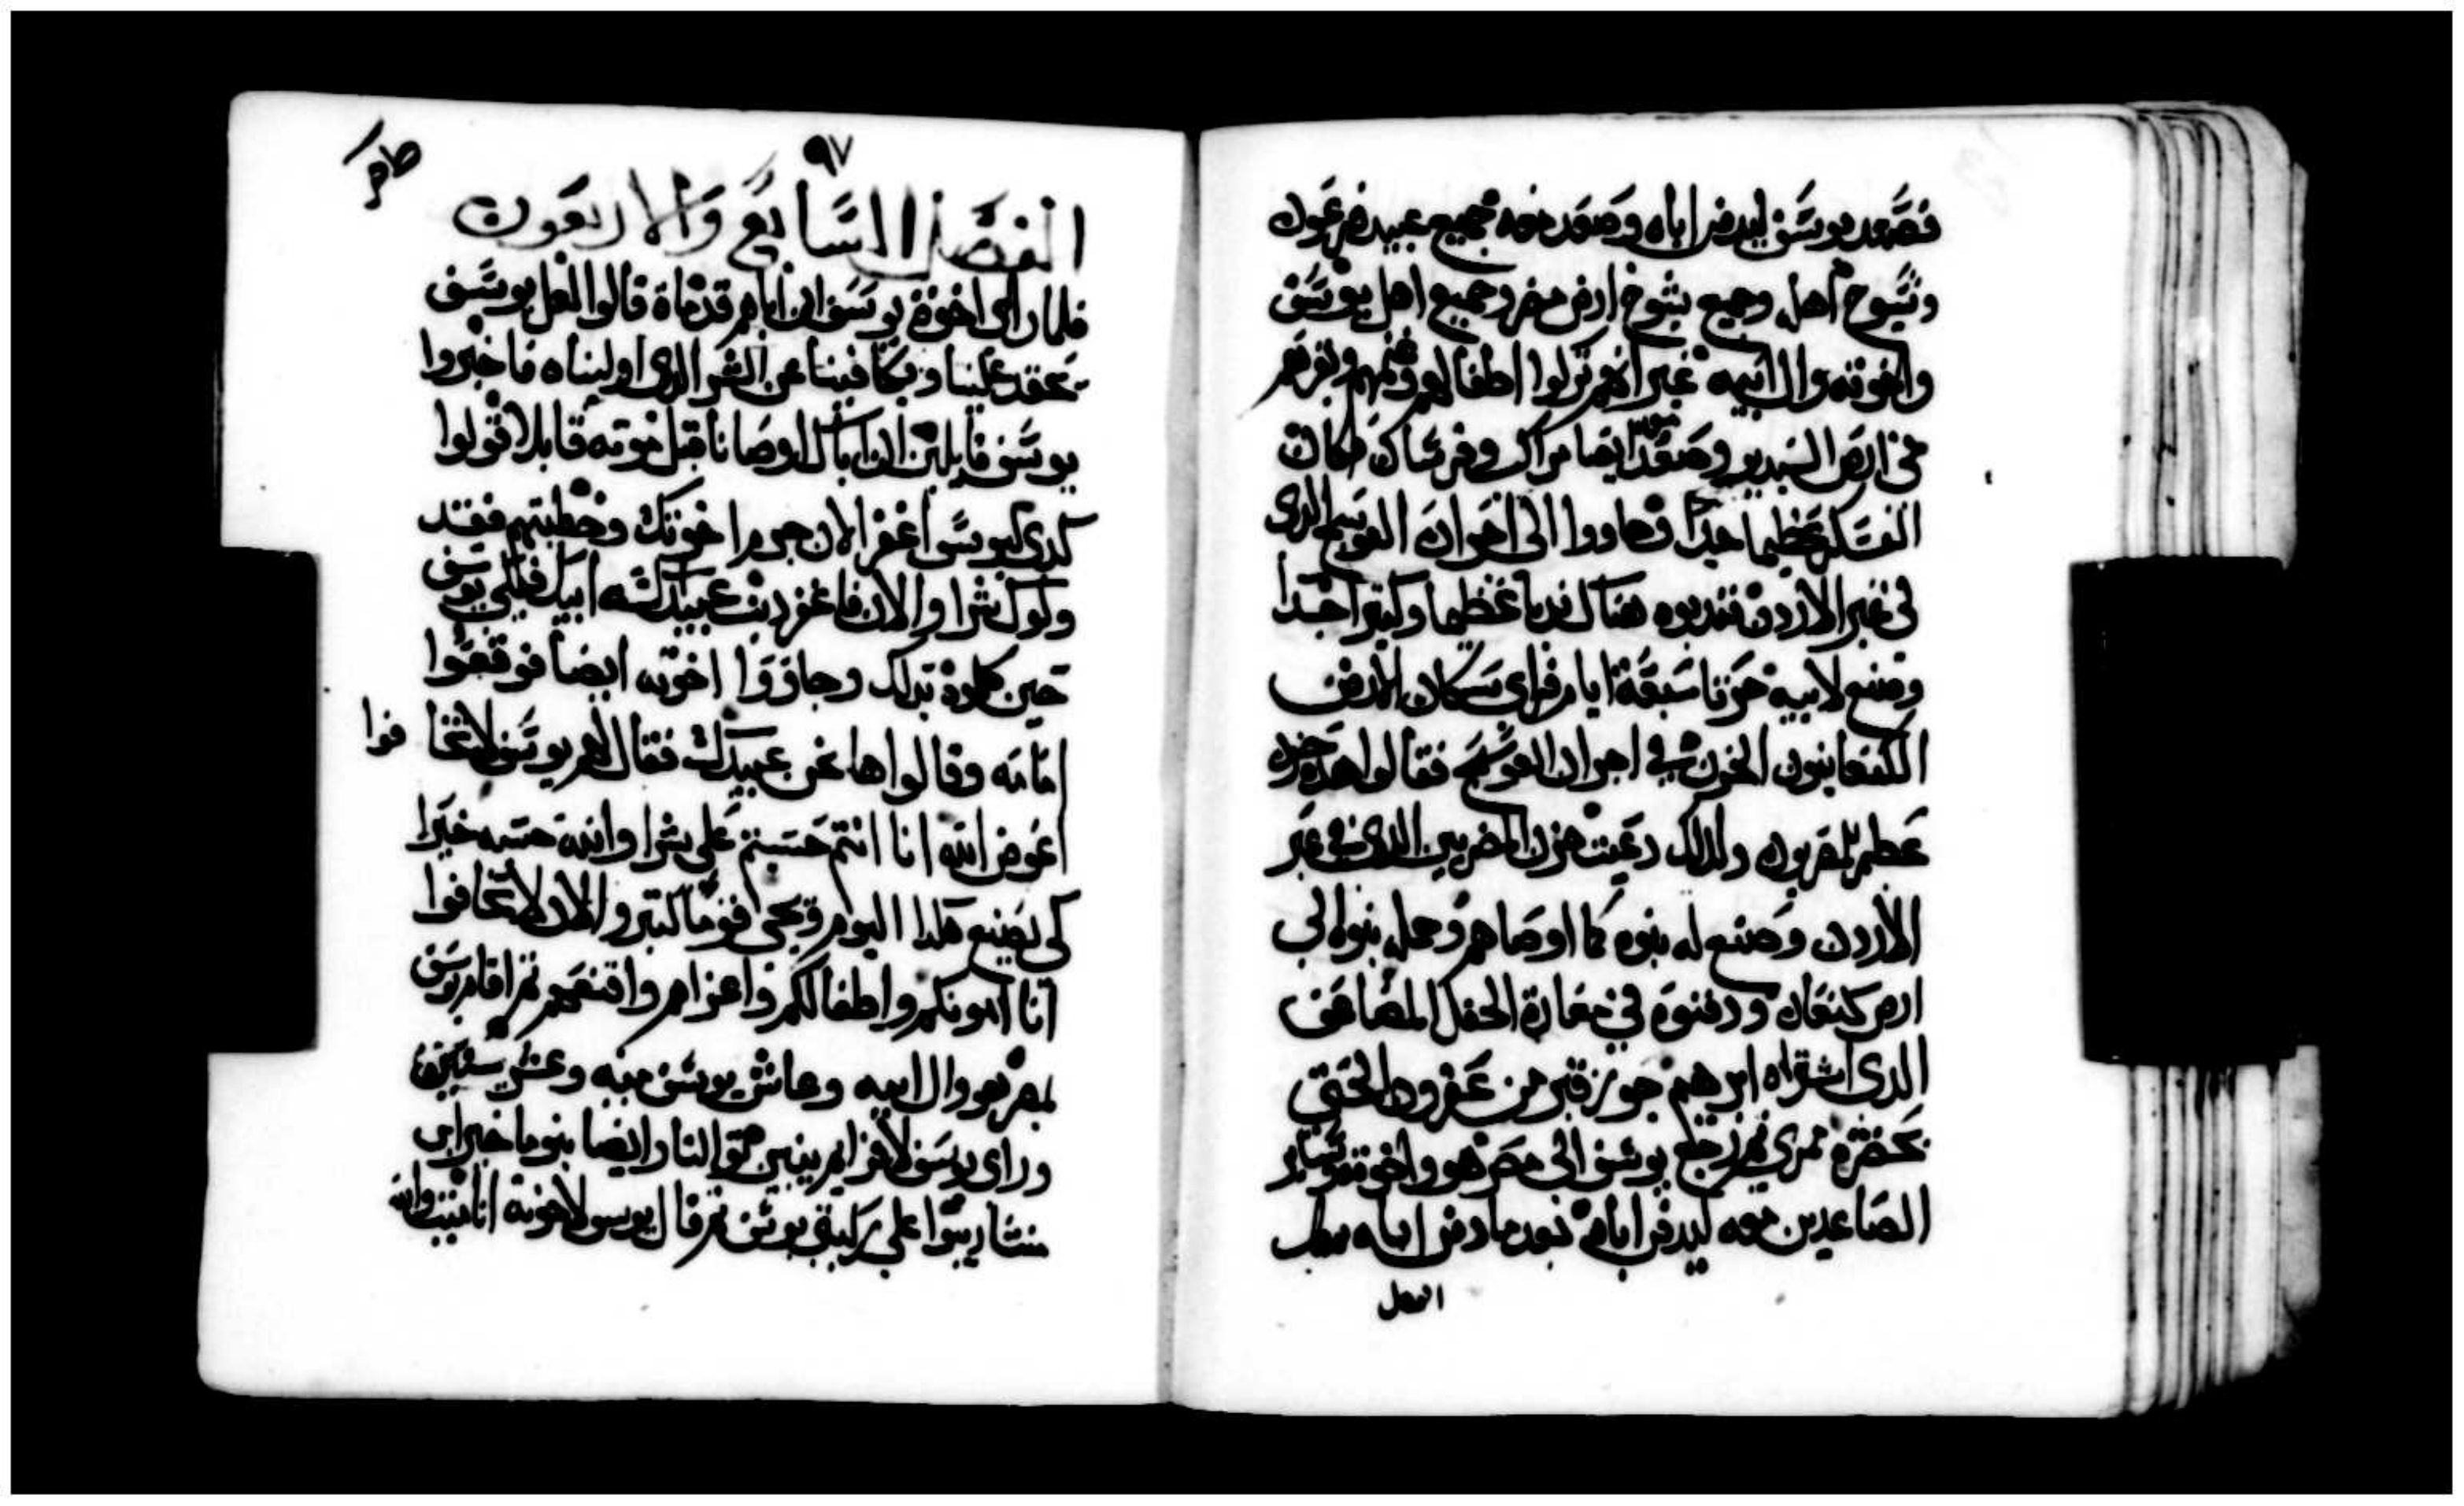 فصعد يوسف ليدفن اباه وصعد معه جميع عبيد فرعون
وشيوخ اهله وجميع شيوخ ارض مصر وجميع اهل يوسف
واخوته وال ابيه غير انهم تركوا اطفالهم وغنمهم وبقرهم
في ارض السدير وصعد معه ايضا مراكب وفرسان فكان
العسكر عظيما جدا فجاووا الى اجران العوسج الدى
في عبر الاردن فندبوه هناك ندبا عظيما وكثيرا جدا
وصنع لابيه حزنا سبعة ايام فراى سكان الارض
الكنعانيون الحزن في اجران العوسج فقالوا هدا حزن
عظيم للمصريون ولدلك دعيت حزن المصريين الدى في عبر
الاردن وصنع له بنوه كما اوصاهم وحمله بنوه الى
ارض كنعان ودفنوه في مغارة الحقل المضاعف
الدى اشتراه ابرهيم حوز قبر من عفرون الحتى
بحضرة ممري ثم رجع يوسف الى مصر هو واخوته وساير
الصاعدين معه ليدفن اباه بعدما دفن اباه
الفصل
٩٧
الفصل السابع والاربعون
فلما راى اخوة يوسف ان اباهم قد مات قالوا لعل يوسف
يحقد علينا ويكافينا عن الشر الدى اوليناه فاخبروا
يوسف قايلين ان اباك اوصانا قبل موته قايلا قولوا
كدى ليوسف اغفر الان جرم اخوتك وخطيتهم فقد
ولوك شرا والان فاغفر دنب عبيد اله ابيك فبكى يوسف
حين كلموه بدلك وجاووا اخوته ايضا فوقعوا
امامه وقالوا ها نحن عبيدك فقال لهم يوسف لا تخا فوا
اعوض الله انا انتم حسبتم على شرا والله حسبه خيرا
لكي يصنع هكدا اليوم ويحيى قوما كثيرا والان لا تخافوا
انا امونكم واطفالكم واعزاهم واقنعهم ثم اقام يوسف
بمصر هو وال ابيه وعاش يوسف ميه وعشر سنين
وراى يوسف لافرايم بنين حتى التالت وايضا بنو ماخير ابن
منشا ربيوا على ركبتي يوسف ثم قال يوسف لاخوته انا ميت والله